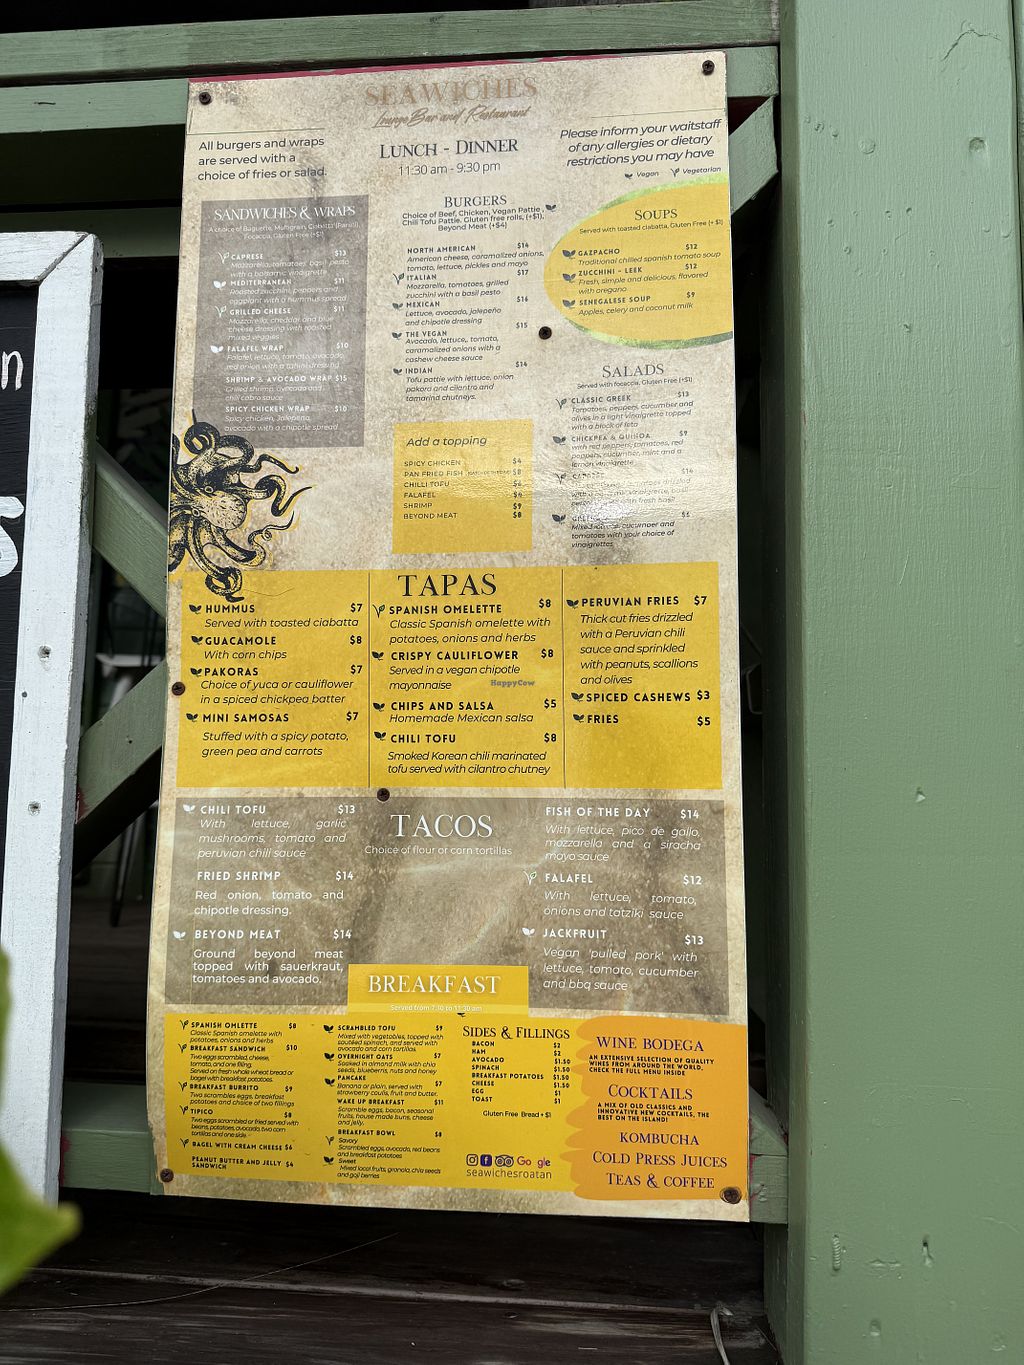 n
S
SEAWICHES
Lounge Bar and Restaurant
All burgers and wraps
are served with a
choice of fries or salad.
LUNCH - DINNER
11:30 am - 9:30 pm
Please inform your waitstaff
of any allergies or dietary
restrictions you may have
Vegan Vegetarian
SANDWICHES & WRAPS
A choice of Baguette, Multigrain, Ciabatta (Panini),
Focaccia, Gluten Free (+$1)
CAPRESE $13
Mozzarella, tomatoes, basil pesto
with a balsamic vinaigrette
MEDITERRANEAN $11
Roasted zucchini, peppers and
eggplant with a hummus spread
GRILLED CHEESE $11
Mozzarella, cheddar and blue
cheese dressing with roasted
mixed veggies
FALAFEL WRAP $10
Falafel, lettuce, tomato, avocado,
red onion with a tahini dressing
SHRIMP & AVOCADO WRAP $15
Grilled shrimp, avocado and
chili cobra sauce
SPICY CHICKEN WRAP $10
Spicy chicken, Jalapeña,
avocado with a chipotle spread
BURGERS
Choice of Beef, Chicken, Vegan Pattie,
Chili Tofu Pattie. Gluten free rolls, (+$1),
Beyond Meat (+$4)
NORTH AMERICAN $14
American cheese, caramalized onions,
tomato, lettuce, pickles and mayo
ITALIAN $17
Mozzarella, tomatoes, grilled
zucchini with a basil pesto
MEXICAN $16
Lettuce, avocado, jalepeño
and chipotle dressing
THE VEGAN $15
Avocado, lettuce, tomato,
caramalized onions with a
cashew cheese sauce
INDIAN $14
Tofu pattie with lettuce, onion
pakora and cilantro and
tamarind chutneys.
Add a topping
SPICY CHICKEN $4
PAN FRIED FISH $8
CHILLI TOFU $4
FALAFEL $4
SHRIMP $9
BEYOND MEAT $8
SOUPS
Served with toasted ciabatta, Gluten Free (+$1)
GAZPACHO $12
Traditional chilled spanish tomato soup
ZUCCHINI - LEEK $12
Fresh, simple and delicious, flavored
with oregano
SENEGALESE SOUP $9
Apples, celery and coconut milk
SALADS
Served with focaccia, Gluten Free (+$1)
CLASSIC GREEK $13
Tomatoes, peppers, cucumber and
olives in a light vinaigrette topped
with a block of feta
CHICKPEA & QUINOA $9
with red peppers, tomatoes, red
peppers, cucumber, mint and a
lemon vinaigrette
$14
tomatoes drizzled
with fresh basil
Mixed cucumber and
tomatoes with your choice of
vinaigrettes
TAPAS
HUMMUS $7
Served with toasted ciabatta
GUACAMOLE $8
With corn chips
PAKORAS $7
Choice of yuca or cauliflower
in a spiced chickpea batter
MINI SAMOSAS $7
Stuffed with a spicy potato,
green pea and carrots
SPANISH OMELETTE $8
Classic Spanish omelette with
potatoes, onions and herbs
CRISPY CAULIFLOWER $8
Served in a vegan chipotle
mayonnaise
HappyCow
CHIPS AND SALSA $5
Homemade Mexican salsa
CHILI TOFU $8
Smoked Korean chili marinated
tofu served with cilantro chutney
PERUVIAN FRIES $7
Thick cut fries drizzled
with a Peruvian chili
sauce and sprinkled
with peanuts, scallions
and olives
SPICED CASHEWS $3
FRIES $5
TACOS
Choice of flour or corn tortillas
CHILI TOFU $13
With lettuce, garlic
mushrooms, tomato and
peruvian chili sauce
FRIED SHRIMP $14
Red onion, tomato and
chipotle dressing.
BEYOND MEAT $14
Ground beyond meat
topped with sauerkraut,
tomatoes and avocado.
FISH OF THE DAY $14
With lettuce, pico de gallo,
mozzarella and a siracha
mayo sauce
FALAFEL $12
With lettuce, tomato,
onions and tatziki sauce
JACKFRUIT $13
Vegan 'pulled pork' with
lettuce, tomato, cucumber
and bbq sauce
BREAKFAST
Served from 7:30 to 11:30 am
SPANISH OMLETTE $8
Classic Spanish omelette with
potatoes, onions and herbs
BREAKFAST SANDWICH $10
Two eggs scrambled, cheese,
tomato, and one filling.
Served on fresh whole wheat bread or
bagel with breakfast potatoes.
BREAKFAST BURRITO $9
Two scrambles eggs, breakfast
potatoes and choice of two fillings
TIPICO $8
Two eggs scrambled or fried served with
beans, potatoes, avocado, two corn
tortillas and one side.
BAGEL WITH CREAM CHEESE $6
PEANUT BUTTER AND JELLY $4
SANDWICH
SCRAMBLED TOFU $9
Mixed with vegetables, topped with
sautéed spinach, and served with
avocado and corn tortillas.
OVERNIGHT OATS $7
Soaked in almond milk with chia
seeds, blueberries, nuts and honey
PANCAKE $7
Banana or plain, served with
strawberry coulis, fruit and butter.
WAKE UP BREAKFAST $11
Scramble eggs, bacon, seasonal
fruits, house made buns, cheese
and jelly.
BREAKFAST BOWL $8
Savory
Scrambled eggs, avocado, red beans
and breakfast potatoes
Sweet
Mixed local fruits, granola, chia seeds
and goji berries
SIDES & FILLINGS
BACON $2
HAM $2
AVOCADO $1.50
SPINACH $1.50
BREAKFAST POTATOES $1.50
CHEESE $1.50
EGG $1
TOAST $1
Gluten Free Bread + $1
Google
seawichesroatan
WINE BODEGA
AN EXTENSIVE SELECTION OF QUALITY
WINES FROM AROUND THE WORLD,
CHECK THE FULL MENU INSIDE
COCKTAILS
A MIX OF OLD CLASSICS AND
INNOVATIVE NEW COCKTAILS, THE
BEST ON THE ISLAND!
KOMBUCHA
COLD PRESS JUICES
TEAS & COFFEE